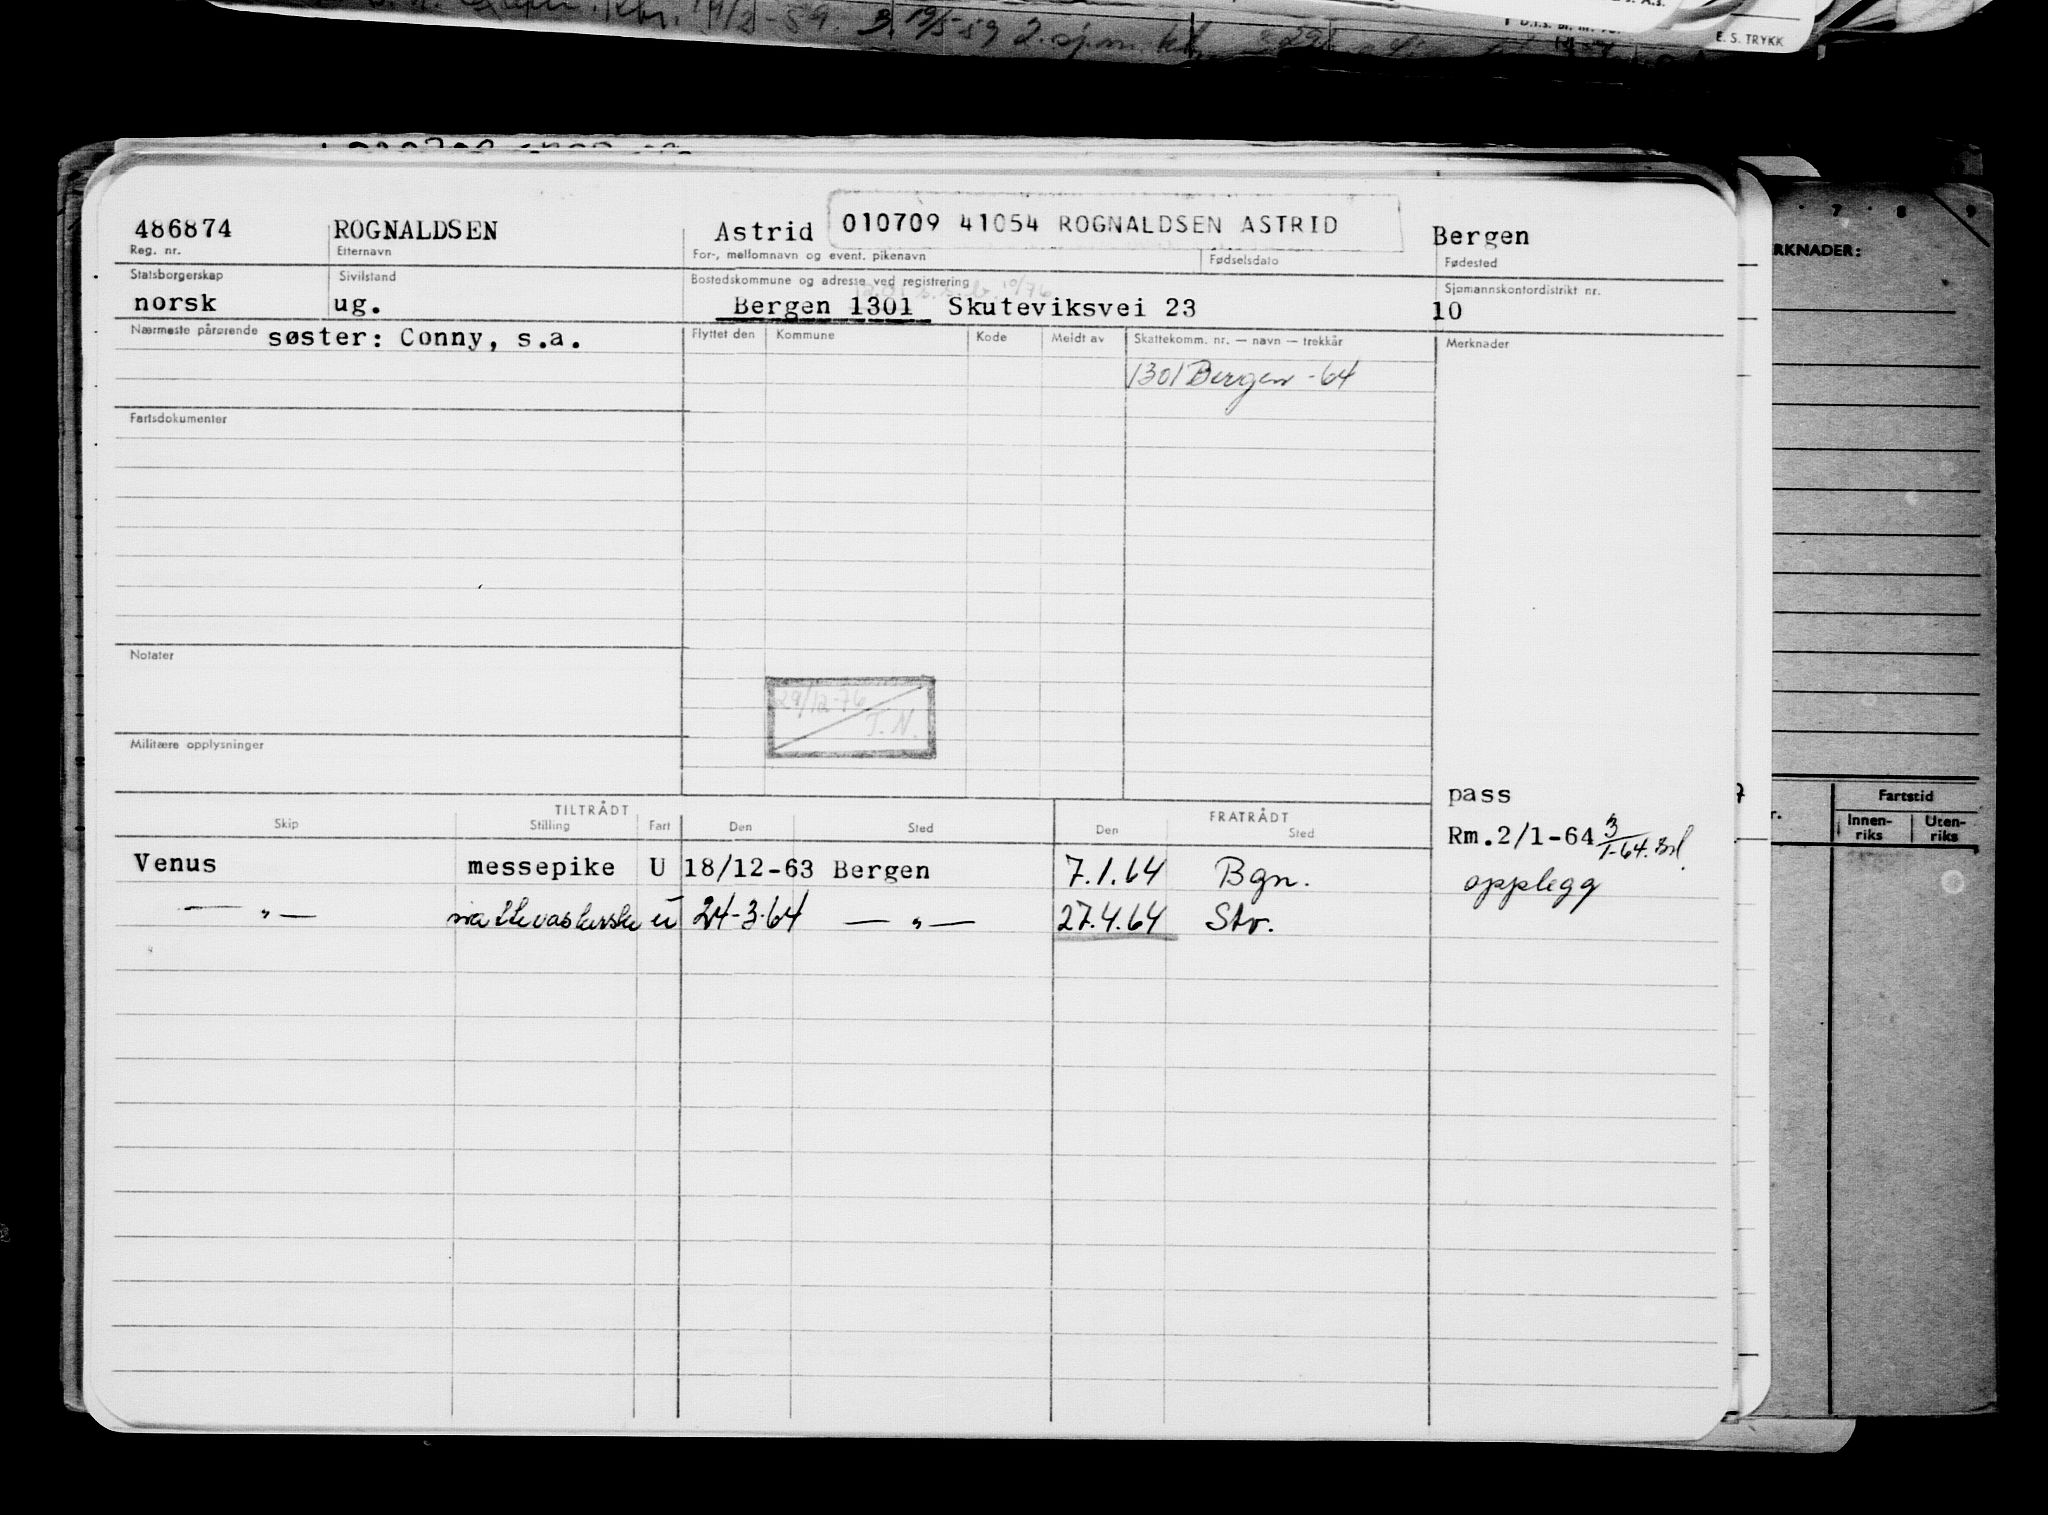 E. S. TRYKK
486874 ROGNALDSEN Astrid 010709 41054 ROGNALDSEN ASTRID Bergen
Reg. nr. Etternavn For-, mellomnavn og event. pikenavn Fødselsdato Fødested
Statsborgerskap Sivilstand Bostedskommune og adresse ved registrering Sjømannskontordistrikt nr.
norsk ug. Bergen 1301 Skuteviksvei 23 10
Nærmeste pårørende søster: Conny, s.a. Flyttet den Kommune Kode Meldt av Skattekomm. nr. — navn — trekkår Merknader
1301 Bergen -64
Fartsdokumenter
Notater
29/12-76
T.N.
Militære opplysninger
pass
TILTRÅDT FRATRÅDT
Skip Stilling Fart Den Sted Den Sted
Rm.2/1-64 3/1-64.
Venus messepike U 18/12-63 Bergen 7.1.64 Bgn.
opplegg
— " — U 24-3-64 — " — 27.4.64 Stv.
7 8 9
RKNADER:
Fartstid
Innen-
riks
Uten-
riks